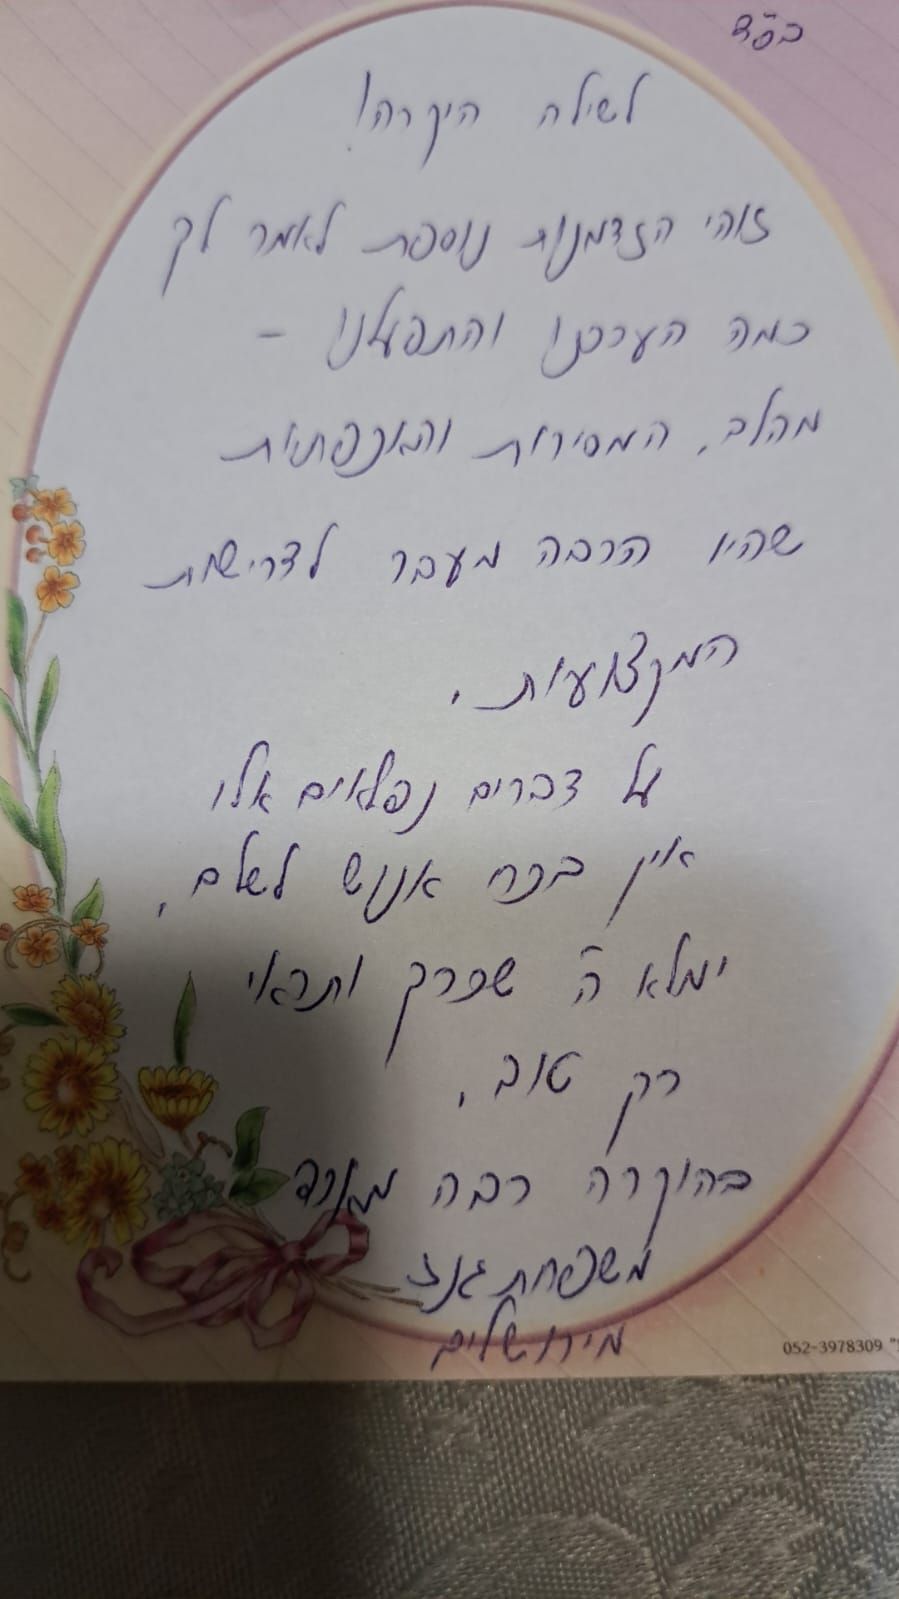 בס"ד
לשילה היקרה!
זוהי הזדמנות נוספת לאמר לך
כמה הערכנו והתפעלנו -
מהלב, המסירות והאכפתיות
שהיו הרבה מעבר לדרישות
המקצועיות.
על דברים נפלאים אלו
אין בכח אנוש לשלם,
ימלא ה' שכרך ותראי
רק טוב,
בהוקרה רבה מאוד
משפחת גנז
מירושלים
052-3978309